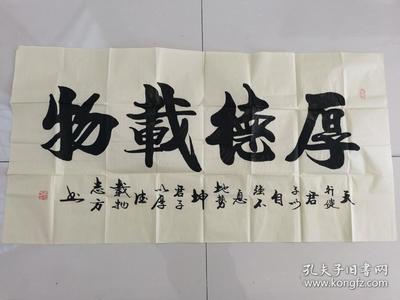 厚德載物
天行健君子以自强不息地势坤君子以厚德載物志方书
孔夫子旧书网